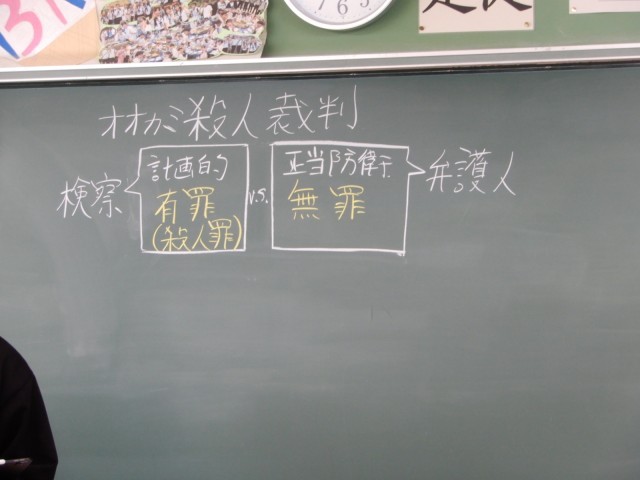 オオカミ殺人裁判
検察
計画的
有罪
(殺人罪)
v.s.
正当防衛
無罪
弁護人
7 6 5